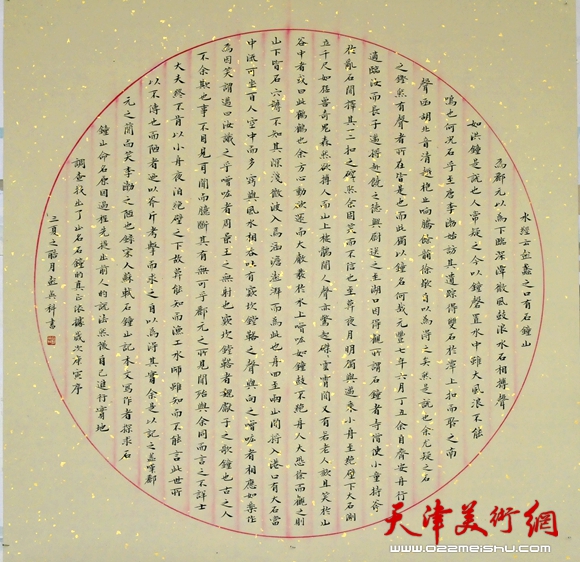 水經云彭蠡之口有石鐘山
焉酈元以為下臨深潭微風鼓浪水石相搏聲
如洪鐘是說也人常疑之今以鐘磬置水中雖大風浪不能
鳴也何況石乎至唐李勃始訪其遺踪得雙石於潭上扣而聆之南
聲函胡北音清越枹止响騰餘韵徐歇自以為得之矣然是說也余尤疑之石
之鏗然有聲者所在皆是也而此獨以鐘名何哉元豐七年六月丁丑余自齊安舟行
適臨汝而長子邁將赴饒之德興尉送之至湖口因得觀所謂石鐘者寺僧使小童持斧
於亂石間擇其一二扣之硿然余固笑而不信也至莫夜月明獨與邁乘小舟至絕壁下大石側
立千尺如猛獸奇鬼森然欲搏人而山上棲鶻聞人聲亦驚起磔磔雲霄間又有若老人欬且笑於山
谷中者或曰此鸛鶴也余方心動欲還而大聲發於水上噌吰如鐘鼓不絕舟人大恐徐而觀之則
山下皆石穴罅不知其淺深微波入焉涵澹澎湃而為此也舟回至兩山間將入港口有大石當
中流可坐百人空中而多竅與風水相吞吐有窾坎鏜鞳之聲與向之噌吰者相應如樂作
焉因笑謂邁曰汝識之乎噌吰者周景王之無射也窾坎鏜鞳者魏獻子之歌鐘也古之人
不余欺也事不目見耳聞而臆斷其有無可乎酈元之所見聞殆與余同而言之不詳士
大夫終不肯以小舟夜泊絕壁之下故莫能知而漁工水師雖知而不能言此世所
以不傳也而陋者乃以斧斤考擊而求之自以為得其實余是以記之蓋嘆酈
元之簡而笑李勃之陋也錄宋人蘇軾石鐘山記本文寫作者探求石
鐘山命名原因過程先提出前人的說法然後自己進行實地
調查找出了山名石鐘的真正依據歲次庚寅序
三夏之皓月 科書
天津美術網
www.022meishu.com